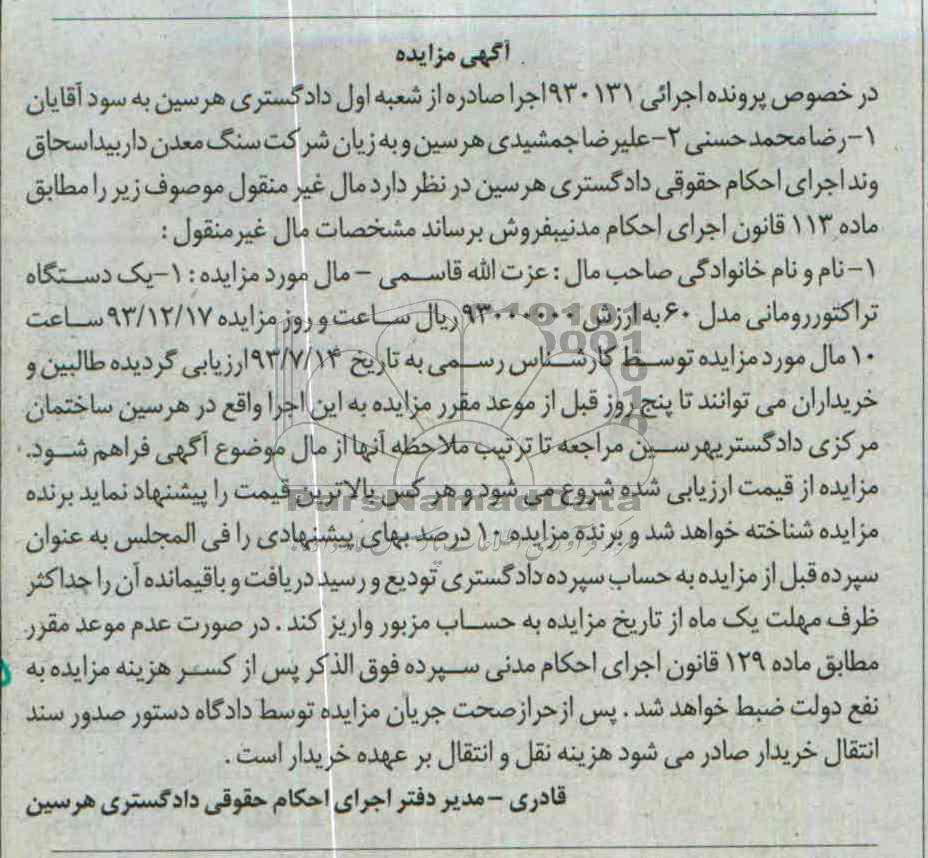 آگهی مزایده
در خصوص پرونده اجرائی ۹۳۰۱۳۱اجرا صادره از شعبه اول دادگستری هرسین به سود آقایان
۱-رضامحمدحسنی ۲-علیرضاجمشیدی هرسین و به زیان شرکت سنگ معدن داربیداسحاق
وند اجرای احکام حقوقی دادگستری هرسین در نظر دارد مال غیر منقول موصوف زیر را مطابق
ماده ۱۱۳ قانون اجرای احکام مدنیبفروش برساند مشخصات مال غیرمنقول :
۱- نام و نام خانوادگی صاحب مال : عزت الله قاسمی - مال مورد مزایده : ۱-یک دستگاه
تراکتوررومانی مدل ۶۰ به ارزش ۹۳۰۰۰۰۰۰ ریال ساعت و روز مزایده ۹۳/۱۲/۱۷ ساعت
۱۰ مال مورد مزایده توسط کارشناس رسمی به تاریخ ۹۳/۷/۱۴ارزیابی گردیده طالبین و
خریداران می توانند تا پنج روز قبل از موعد مقرر مزایده به این اجرا واقع در هرسین ساختمان
مرکزی دادگستریهرسین مراجعه تا ترتیب ملاحظه آنها از مال موضوع آگهی فراهم شود.
مزایده از قیمت ارزیابی شده شروع می شود و هر کس بالاترین قیمت را پیشنهاد نماید برنده
مزایده شناخته خواهد شد و برنده مزایده ۱۰ درصد بهای پیشنهادی را فی المجلس به عنوان
سپرده قبل از مزایده به حساب سپرده دادگستری تودیع و رسید دریافت و باقیمانده آن را حداکثر
ظرف مهلت یک ماه از تاریخ مزایده به حساب مزبور واریز کند . در صورت عدم موعد مقرر
مطابق ماده ۱۲۹ قانون اجرای احکام مدنی سپرده فوق الذکر پس از کسر هزینه مزایده به
نفع دولت ضبط خواهد شد . پس ازحرازصحت جریان مزایده توسط دادگاه دستور صدور سند
انتقال خریدار صادر می شود هزینه نقل و انتقال بر عهده خریدار است .
قادری - مدیر دفتر اجرای احکام حقوقی دادگستری هرسین
ParsNamadData